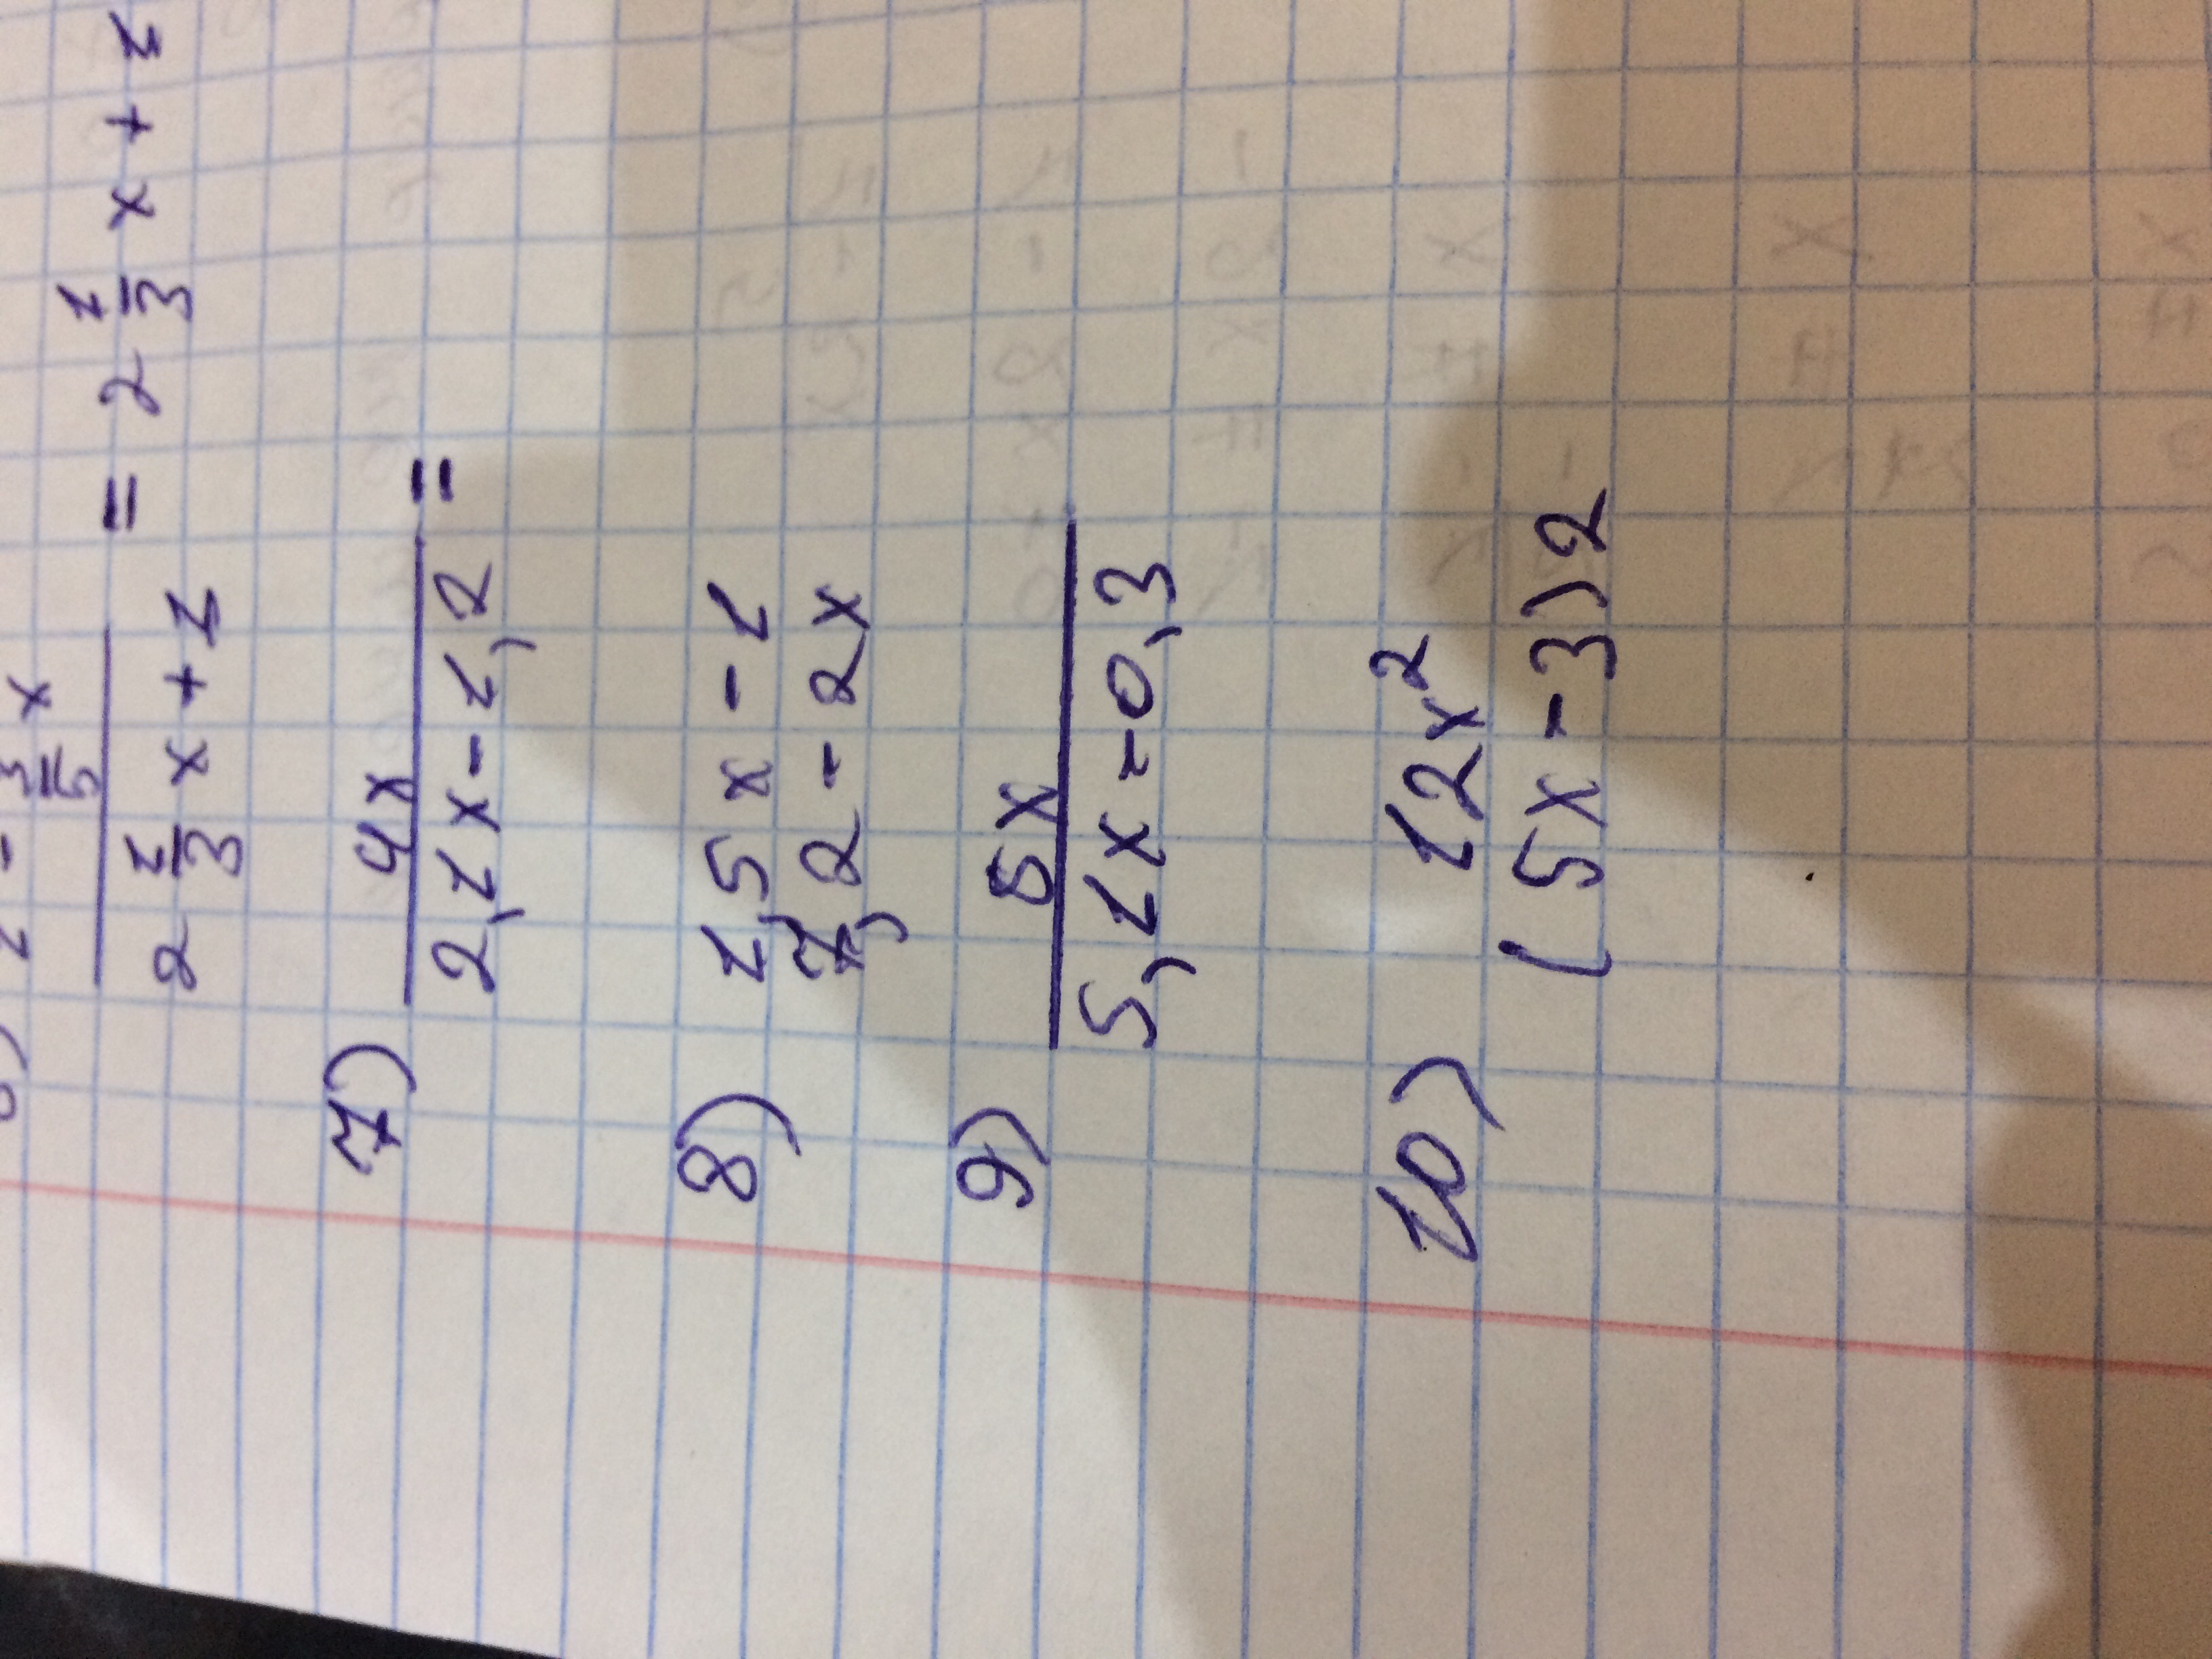 1 - 3/5 x
2 1/3 x + 1 = 2 1/3 x + 1
7) 4x
2,1x - 1,2 =
8) 1,5x - 1
7,2 - 2x
9) 5x
5,1x - 0,3
10) 12x²
(5x - 3)2